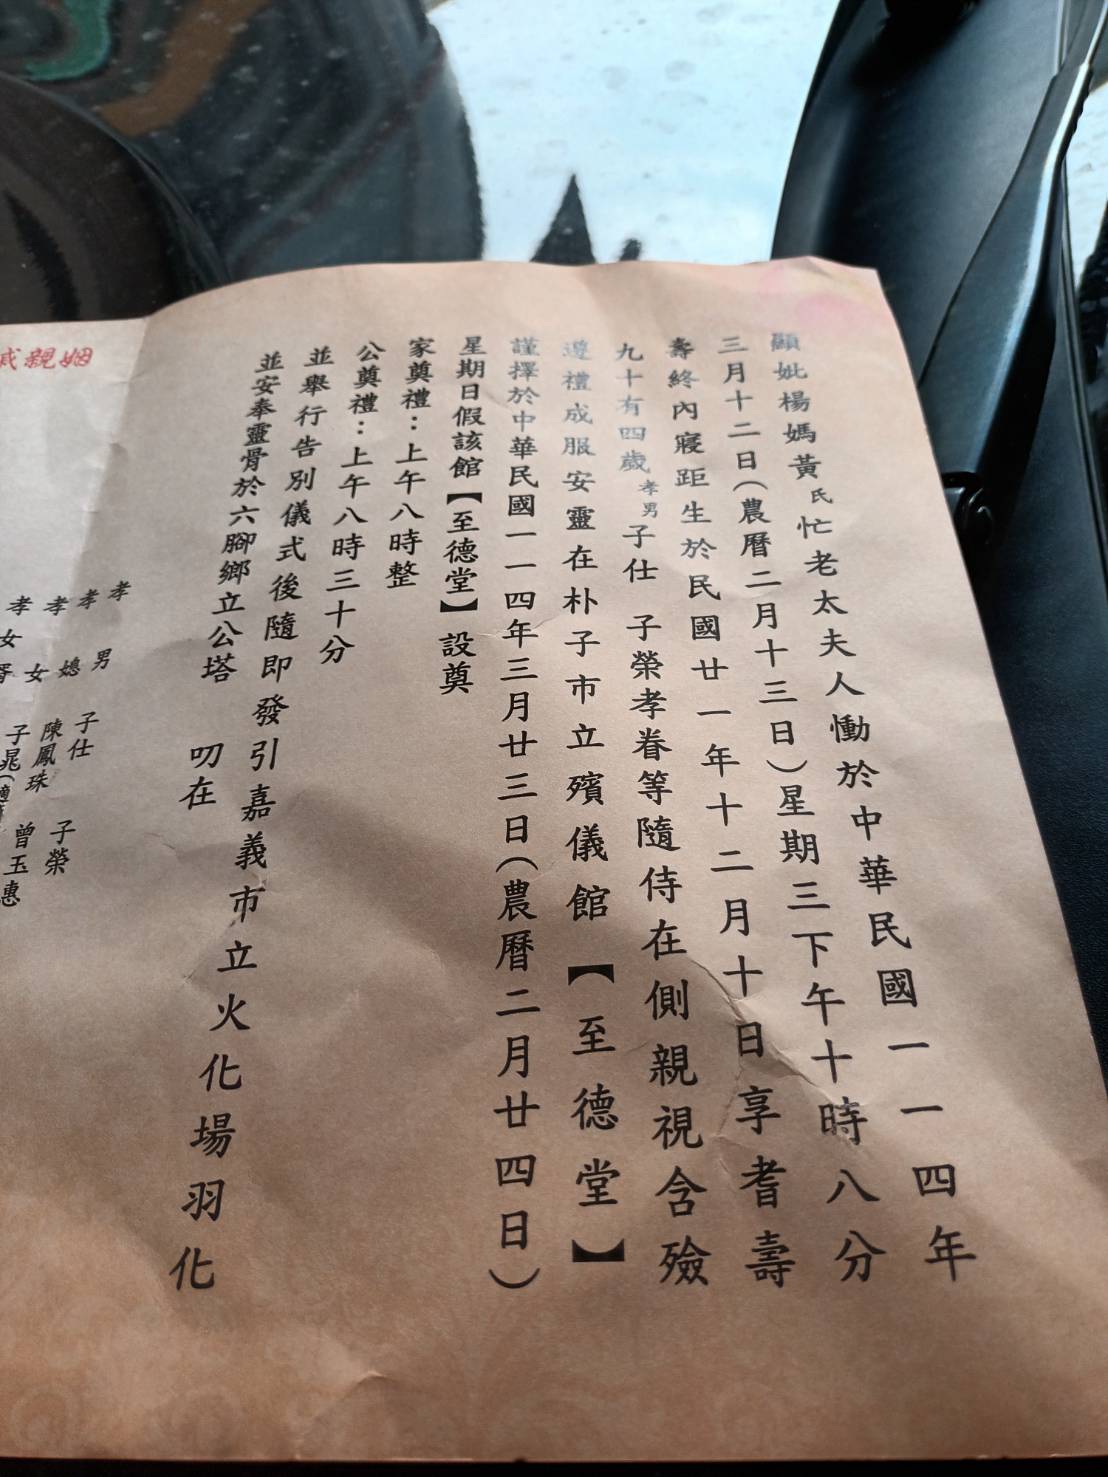 顯妣楊媽黃氏忙老太夫人慟於中華民國一一四年
三月十二日(農曆二月十三日)星期三下午十時八分
壽終內寢距生於民國廿一年十二月十日享耆壽
九十有四歲孝男子仕 子榮孝眷等隨侍在側親視含殮
遵禮成服安靈在朴子市立殯儀館【至德堂】
謹擇於中華民國一一四年三月廿三日(農曆二月廿四日)
星期日假該館【至德堂】設奠
家奠禮:上午八時整
公奠禮:上午八時三十分
並舉行告別儀式後隨即發引嘉義市立火化場羽化
並安奉靈骨於六腳鄉立公塔 叨在
姻親戚
孝男 子仕 子榮
孝媳 陳鳳珠 曾玉惠
孝女 子晁
孝女婿